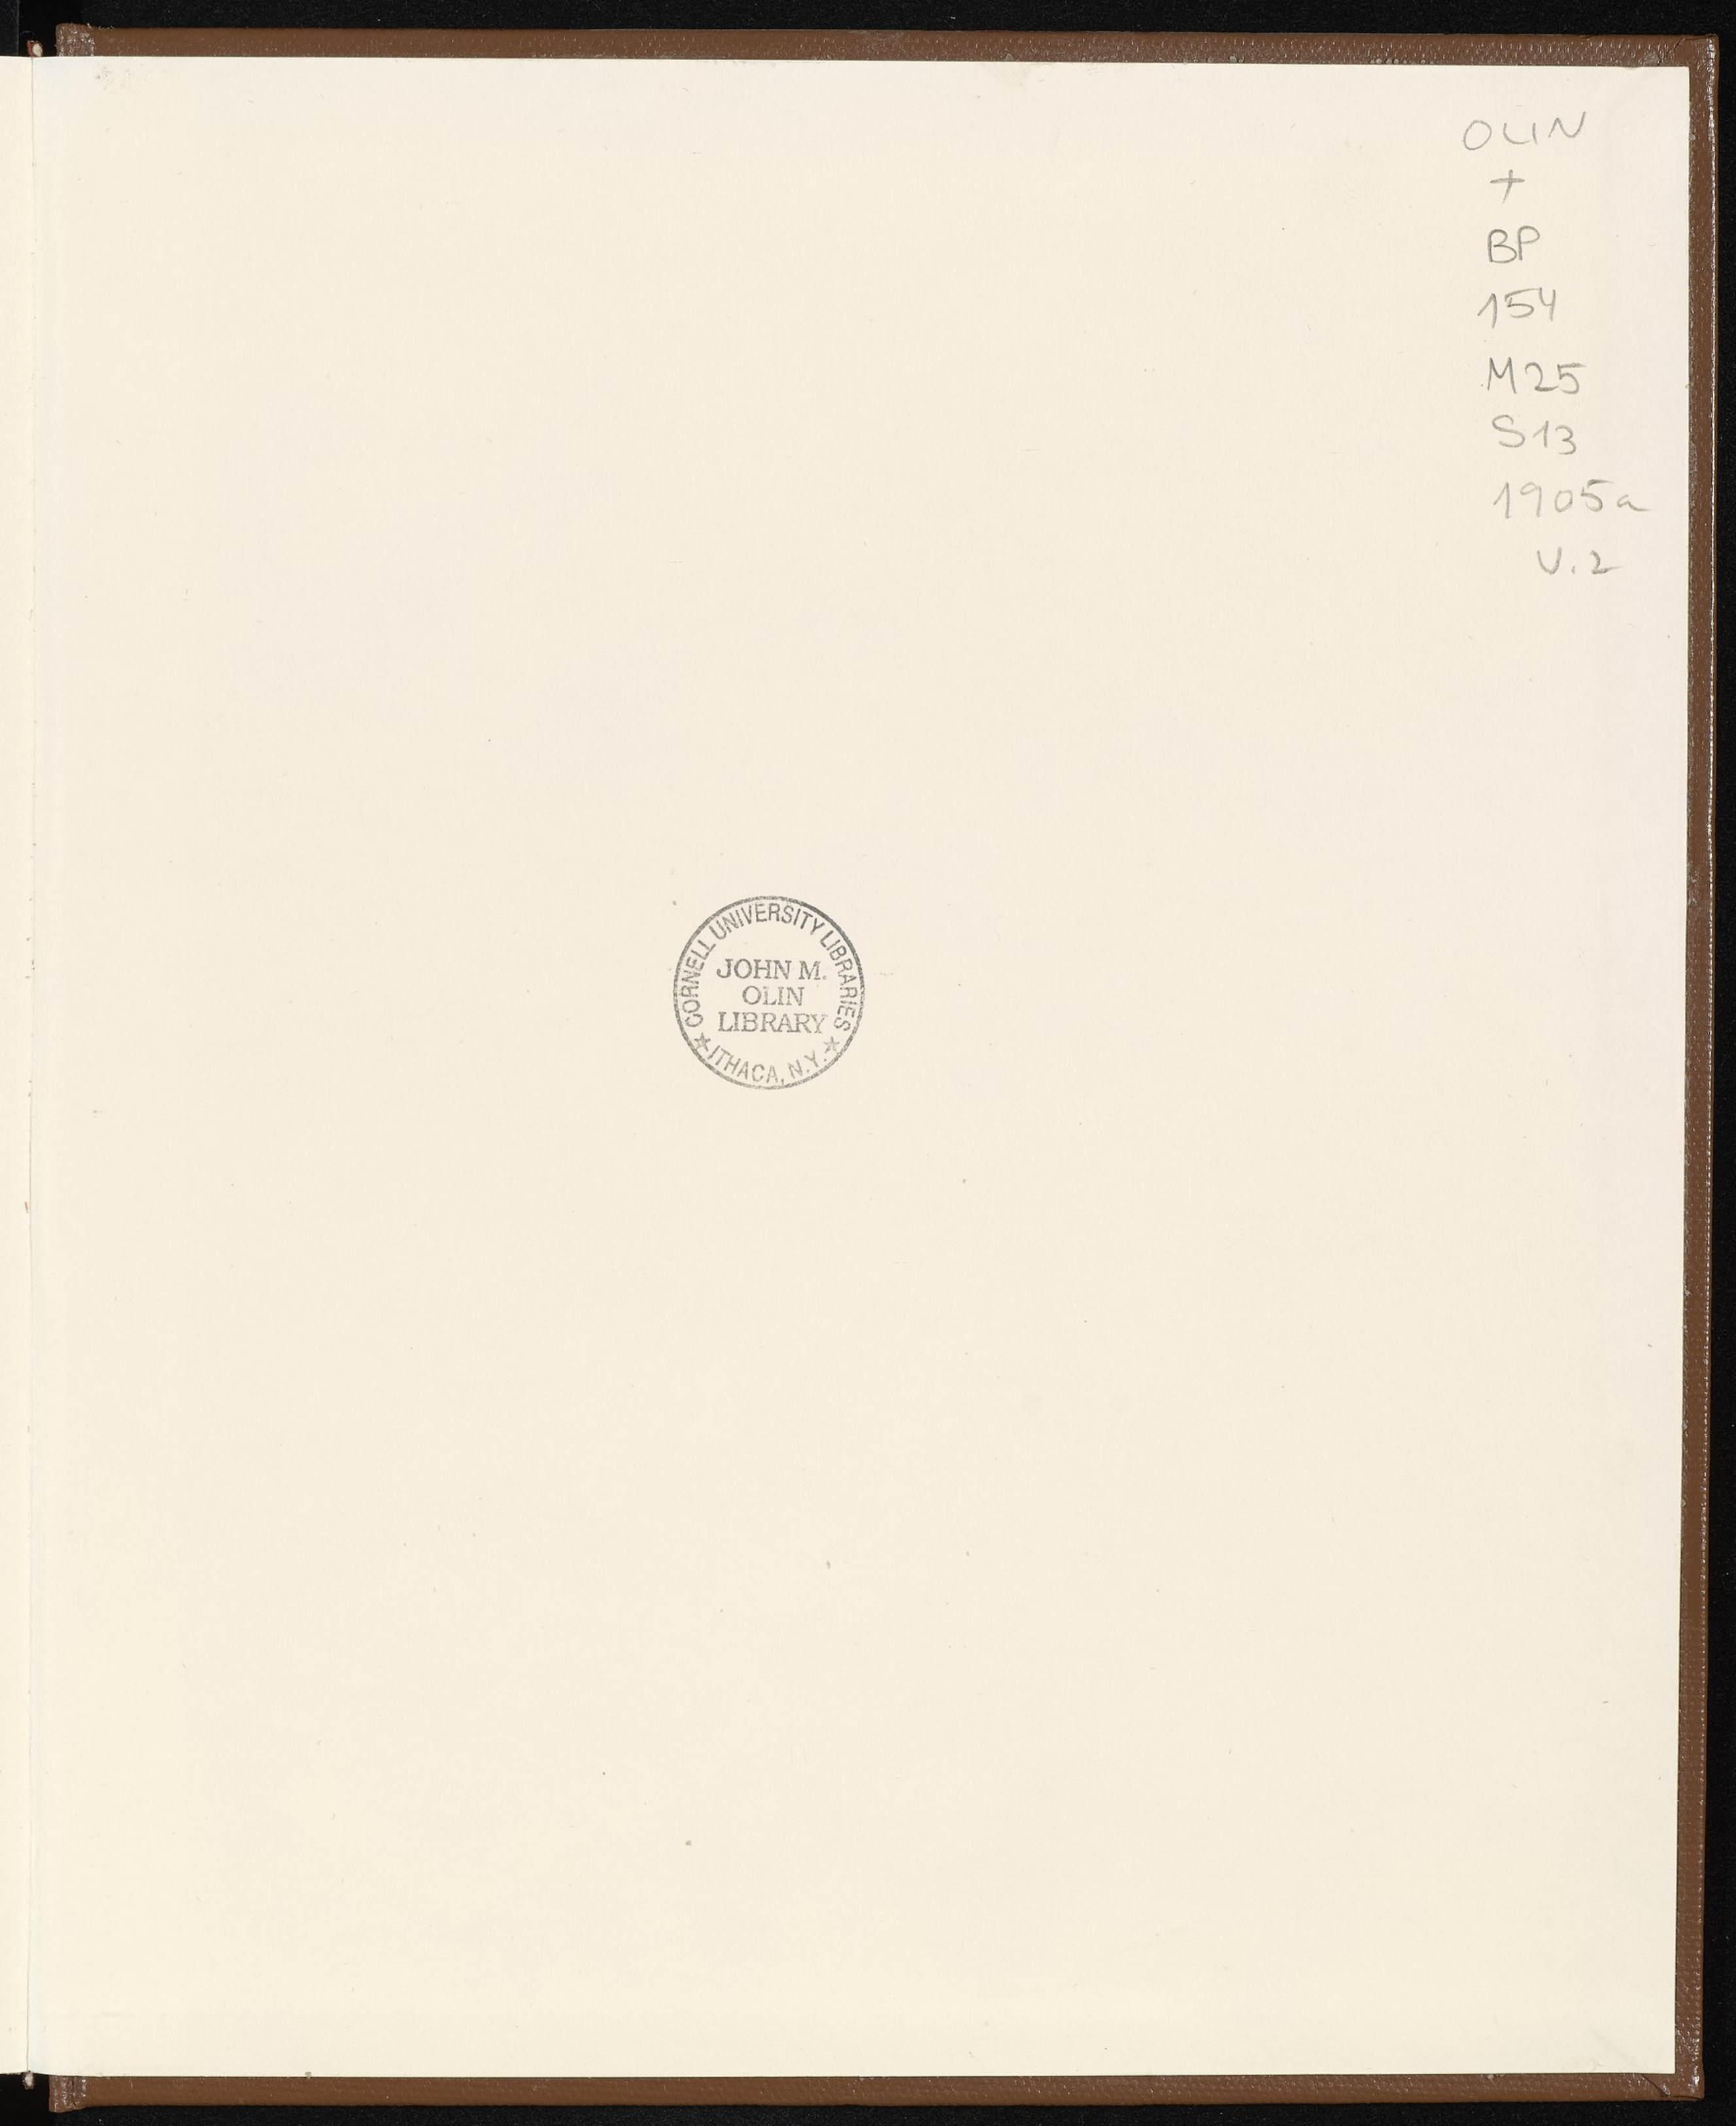 OLIN
+
BP
154
M25
S13
1905a
V.2
CORNELL UNIVERSITY LIBRARIES
JOHN M.
OLIN
LIBRARY
★ ITHACA, N.Y. ★